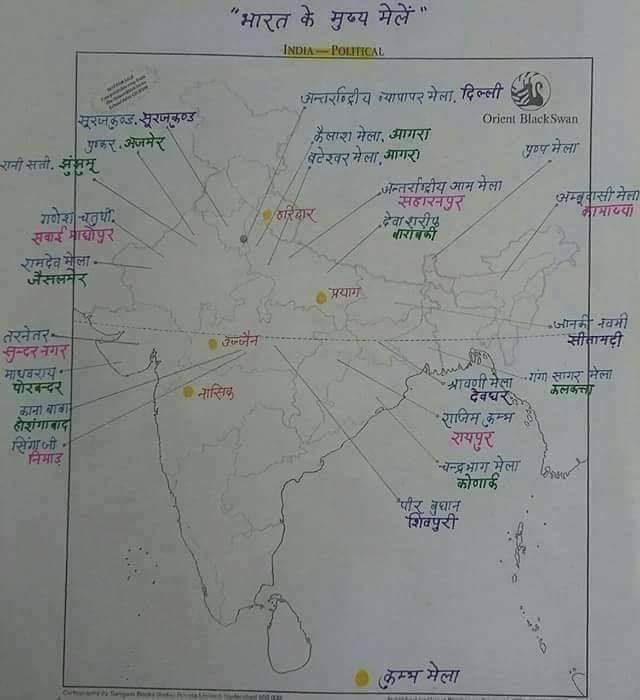 "भारत के मुख्य मेलें"
INDIA — POLITICAL
Orient BlackSwan
अन्तर्राष्ट्रीय व्यापार मेला, दिल्ली
सूरजकुण्ड, सूरजकुण्ड
पुष्कर, अजमेर
रानी सती, झुंझुनू
कैलाश मेला, आगरा
बटेश्वर मेला, आगरा
पुष्प मेला
अन्तर्राष्ट्रीय आम मेला
सहारनपुर
अम्बुवासी मेला
कामाख्या
गणेश चतुर्थी,
सवाई माधोपुर
हरिद्वार
देवा शरीफ
बाराबंकी
रामदेव मेला
जैसलमेर
प्रयाग
जानकी नवमी
सीतामढ़ी
तरनेतर
सुन्दरनगर
उज्जैन
माधवराय
पोरबन्दर
श्रावणी मेला
देवघर
गंगा सागर मेला
कलकत्ता
नासिक
काना बाबा
होशंगाबाद
सिंगाजी
निमाड़
राजिम कुम्भ
रायपुर
चन्द्रभाग मेला
कोणार्क
पीर बुधान
शिवपुरी
कुम्भ मेला